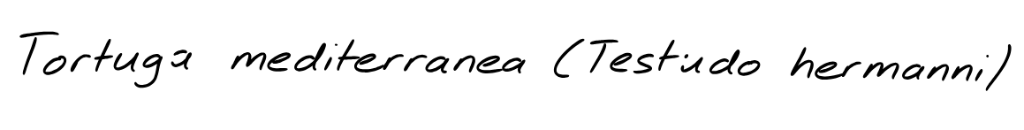 Tortuga mediterranea (Testudo hermanni)